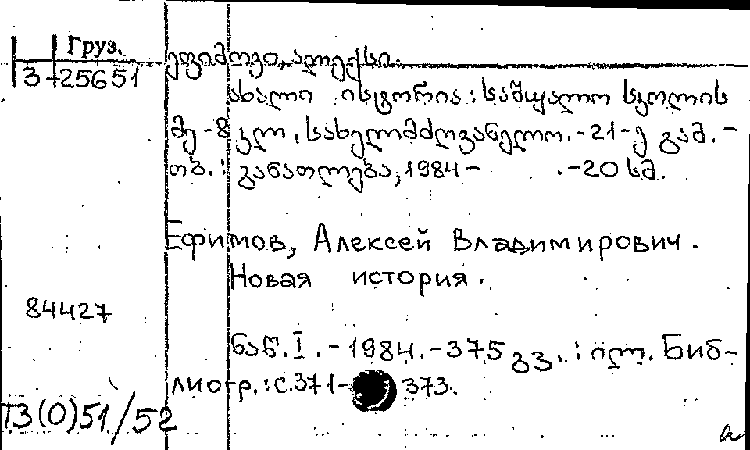 Груз.
3-25651
ეფიმოვი, ალექსი.
ახალი ისტორია: საშუალო სკოლის
მე-8 კლ. სახელმძღვანელო.-21-ე გამ.-
თბ.: განათლება, 1984- .-20 სმ.
Ефимов, Алексей Владимирович.
Новая история.
84427
ნაწ. I.-1984.-375 გვ.: ილ. Биб-
лиогр.: с.371- 373.
Т3(0)51/52